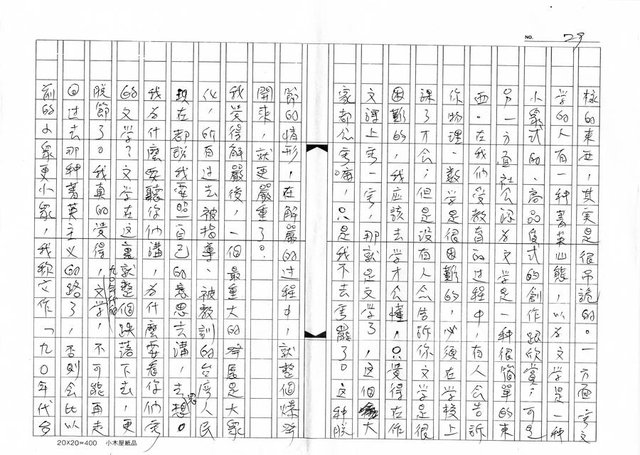 NO. 23
樣的東西，其實是很吊詭的。一方面寫文
學的人有一種菁英心態，以為文學是一種
小眾式的、高品質式的創作跟欣賞，可是
另一方面社會認為文學是一種很簡單的東
西。在我們受教育的過程中，有人會告訴
你物理、數學是很困難的，必須在學校上
課了才會；但是沒有人會告訴你文學是很
困難的，我應該去學才會懂，只覺得在作
文課上寫一寫，那就是文學了，這個大
家都會寫嘛，只是我不去寫罷了。這種脫
節的情形，在解嚴的過程中，就整個爆發
開來，就更嚴重了。
我覺得解嚴後，一個最重大的發展是大眾
化，所有過去被指導、被教訓的台灣人民
現在都說我要照自己的意思去講，去想。
我為什麼要聽你們講，為什麼要看你們寫
的文學？文學在這裏就整個跌落下去，更
脫節了。我真的覺得，九〇年代的文學，不可能再走
回過去那種菁英主義的路了，否則會比以
前的小眾更小眾，我作「一九〇年代台
20×20=400 小木屋紙品